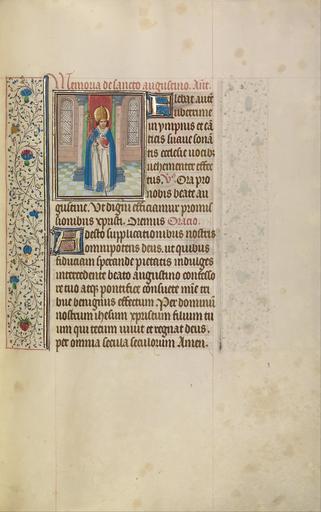 Memoria de sancto augustino. Añt.
Flebat aute
uberrime
in ympnis et cā
ticis suaue sonā
tis ecclesie uocib;
uehementer affec
tus. V. Ora pro
nobis beate au
gustine. Vt digni efficiamur promis
sionibus xpisti. Oremus Oracio.
Adesto supplicationibus nostris
omnipotens deus. ut quibus
fiduciam sperande pietatis indulges
intercedente beato augustino confesso
re tuo atq; pontifice consuete mīe tri
bue benignus effectum. Per dominū
nostrum ihesum xpristum filium tu
um qui tecum uiuit et regnat deus.
per omnia secula seculorum Amen.